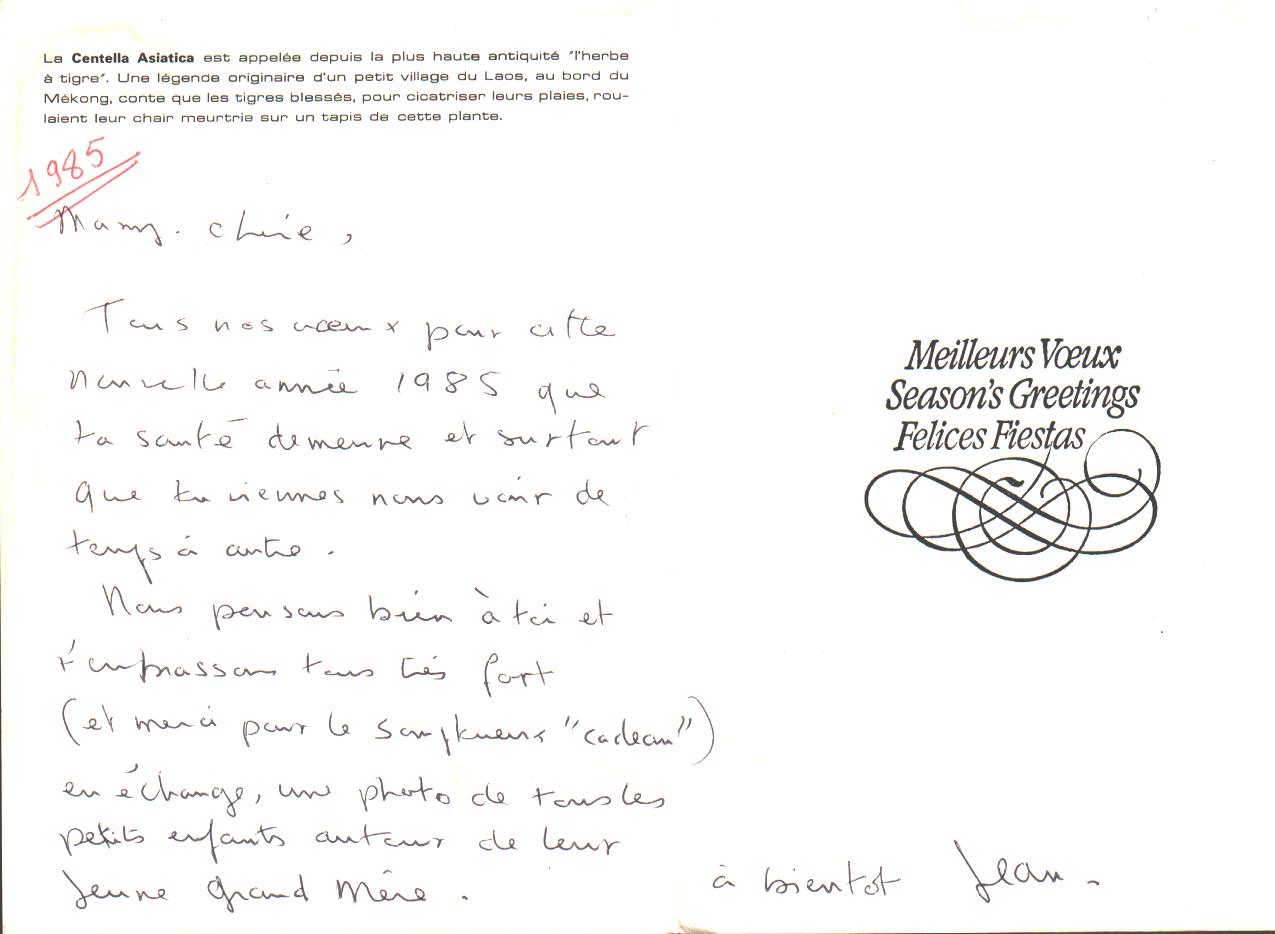 La Centella Asiatica est appelée depuis la plus haute antiquité "l'herbe
à tigre". Une légende originaire d'un petit village du Laos, au bord du
Mékong, conte que les tigres blessés, pour cicatriser leurs plaies, rou-
laient leur chair meurtrie sur un tapis de cette plante.
1985
Mamy chérie,
Tous nos vœux pour cette
nouvelle année 1985 que
ta santé demeure et surtout
que tu viennes nous voir de
temps à autre.
Nous pensons bien à toi et
t'embrassons tous très fort
(et merci pour le somptueux "cadeau")
en échange, une photo de tous les
petits enfants autour de leur
jeune grand Mère.
Meilleurs Vœux
Season's Greetings
Felices Fiestas
à bientot Jean.